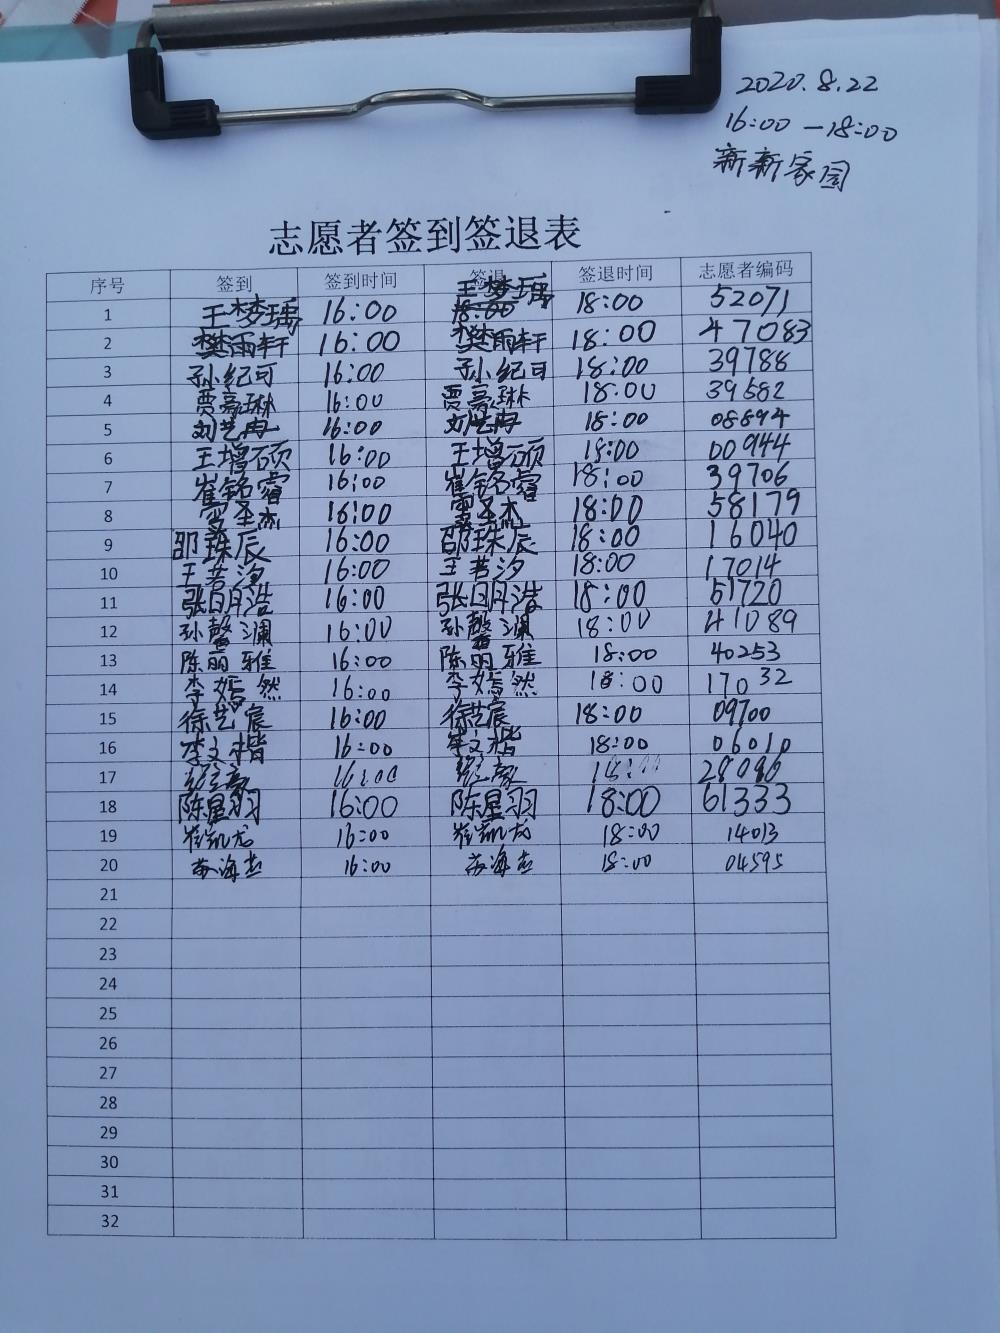 2020.8.22
16:00—18:00
新新家园
志愿者签到签退表
序号 签到 签到时间 签退 签退时间 志愿者编码
1 王梦瑀 16:00 王梦瑀 18:00 52071
2 樊雨轩 16:00 樊雨轩 18:00 47083
3 孙纪可 16:00 孙纪可 18:00 39788
4 贾豪琳 16:00 贾豪琳 18:00 39582
5 刘艺冉 16:00 刘艺冉 18:00 08894
6 王增硕 16:00 王增硕 18:00 00944
7 崔铭睿 16:00 崔铭睿 18:00 39706
8 16:00 18:00 58179
9 邵珠辰 16:00 邵珠辰 18:00 16040
10 王若汐 16:00 王若汐 18:00 17014
11 张明浩 16:00 张明浩 18:00 51720
12 孙馨澜 16:00 孙馨澜 18:00 41089
13 陈丽雅 16:00 陈丽雅 18:00 40253
14 李嫣然 16:00 李嫣然 18:00 17032
15 徐艺宸 16:00 徐艺宸 18:00 09700
16 李文楷 16:00 李文楷 18:00 06010
17 16:00 28096
18 陈星羽 16:00 陈星羽 18:00 61333
19 崔凯龙 16:00 崔凯龙 18:00 14013
20 16:00 18:00 04595
21
22
23
24
25
26
27
28
29
30
31
32